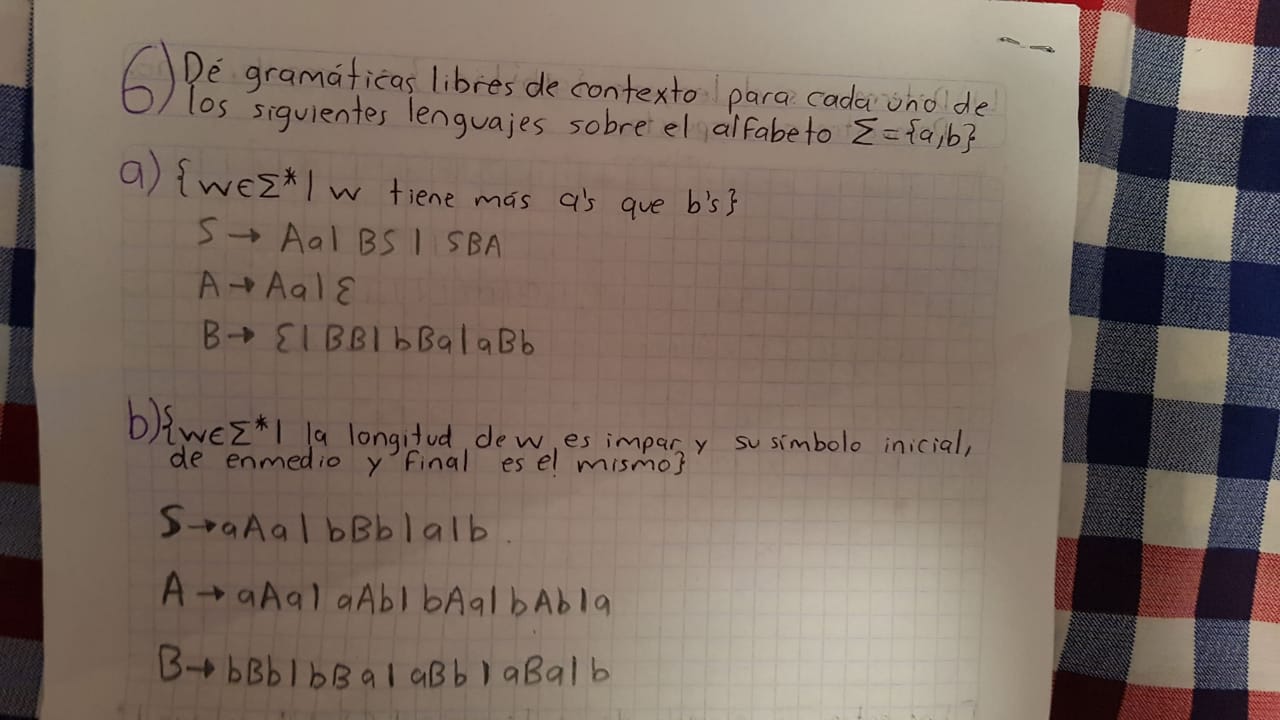 6) Dé gramáticas libres de contexto para cada uno de
los siguientes lenguajes sobre el alfabeto Σ={a,b}
a) {w∈Σ*| w tiene más a's que b's}
S → Aa| BS | SBA
A → Aa|ε
B → ε| BB| bBa| aBb
b){w∈Σ*| la longitud de w es impar y su símbolo inicial,
de enmedio y final es el mismo}
S→aAa| bBb|a|b
A → aAa| aAb| bAa| bAb|a
B→ bBb| bBa| aBb| aBa|b